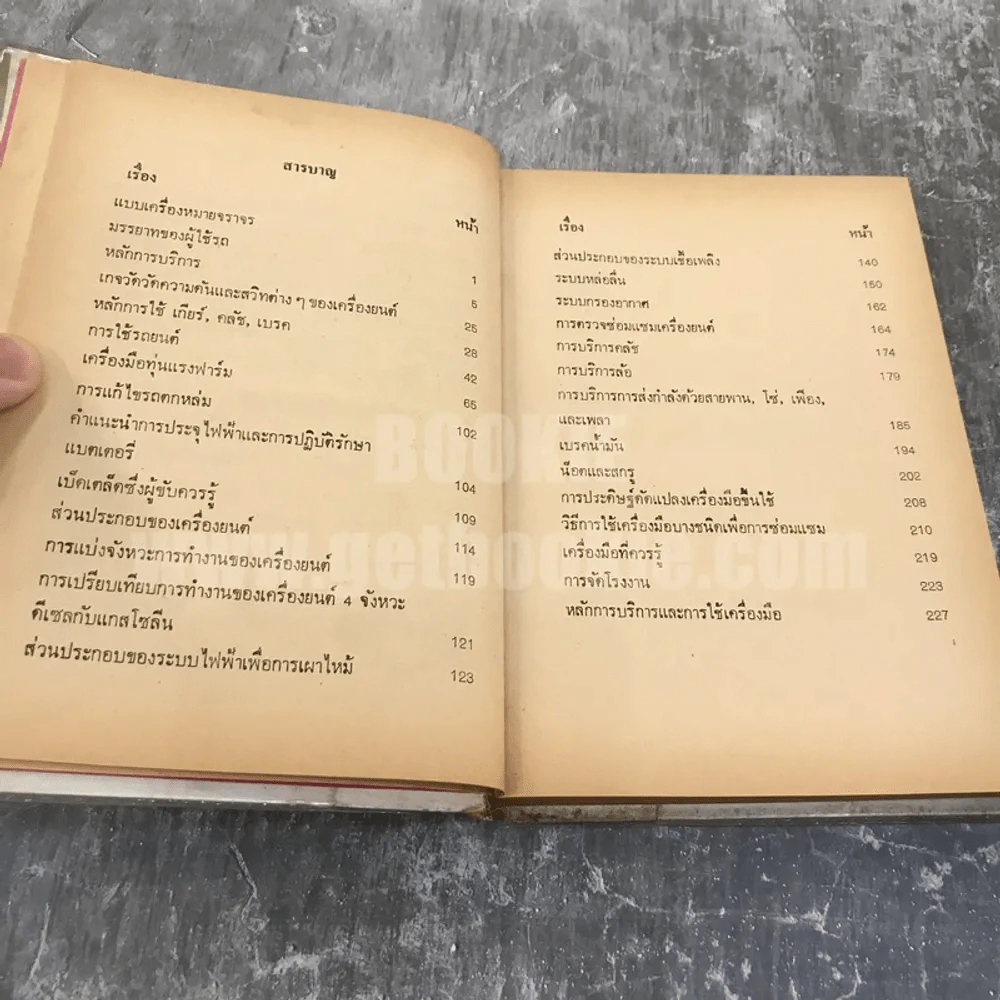 สารบาญ
เรื่อง หน้า
แบบเครื่องหมายจราจร
มรรยาทของผู้ใช้รถ 1
หลักการบริการ 5
เกจวัดวัดความดันและสวิทต่าง ๆ ของเครื่องยนต์ 25
หลักการใช้ เกียร์, คลัช, เบรค 28
การใช้รถยนต์ 42
เครื่องมือทุ่นแรงฟาร์ม 65
การแก้ไขรถตกหล่ม 102
คำแนะนำการประจุไฟฟ้าและการปฏิบัติรักษา
แบตเตอรี่ 104
เบ็ดเตล็ดซึ่งผู้ขับควรรู้ 109
ส่วนประกอบของเครื่องยนต์ 114
การแบ่งจังหวะการทำงานของเครื่องยนต์ 119
การเปรียบเทียบการทำงานของเครื่องยนต์ 4 จังหวะ
ดีเซลกับแกสโซลีน 121
ส่วนประกอบของระบบไฟฟ้าเพื่อการเผาไหม้ 123
เรื่อง หน้า
ส่วนประกอบของระบบเชื้อเพลิง 140
ระบบหล่อลื่น 150
ระบบกรองอากาศ 162
การตรวจซ่อมแซมเครื่องยนต์ 164
การบริการคลัช 174
การบริการล้อ 179
การบริการการส่งกำลังด้วยสายพาน, โซ่, เฟือง,
และเพลา 185
เบรคน้ำมัน 194
น๊อตและสกรู 202
การประดิษฐ์ดัดแปลงเครื่องมือขึ้นใช้ 208
วิธีการใช้เครื่องมือบางชนิดเพื่อการซ่อมแซม 210
เครื่องมือที่ควรรู้ 219
การจัดโรงงาน 223
หลักการบริการและการใช้เครื่องมือ 227